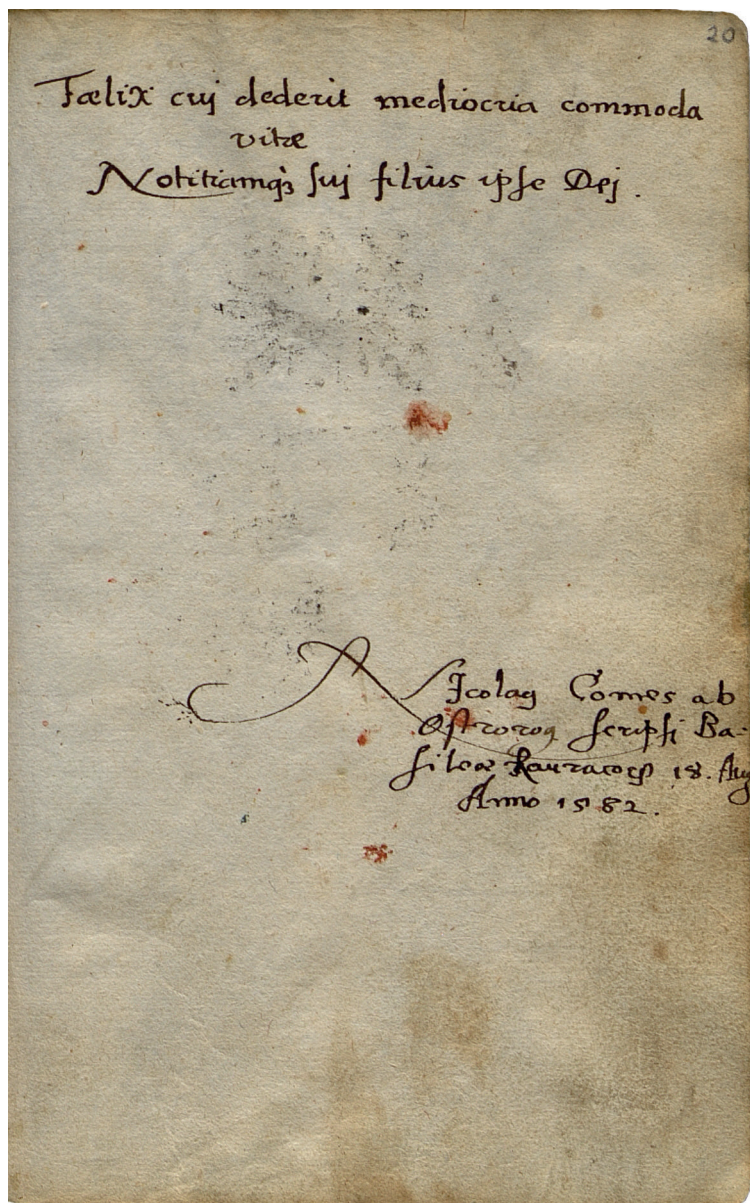 20
Fœlix cuj dederit mediocria commoda
vitæ
Notitiamq₃ suj filius ipse Dej.
NJcolaꝰ Comes ab
Ostrorog scripsi Ba-
sileæ Rauracoꝝ 18. Aug
Anno 1582.